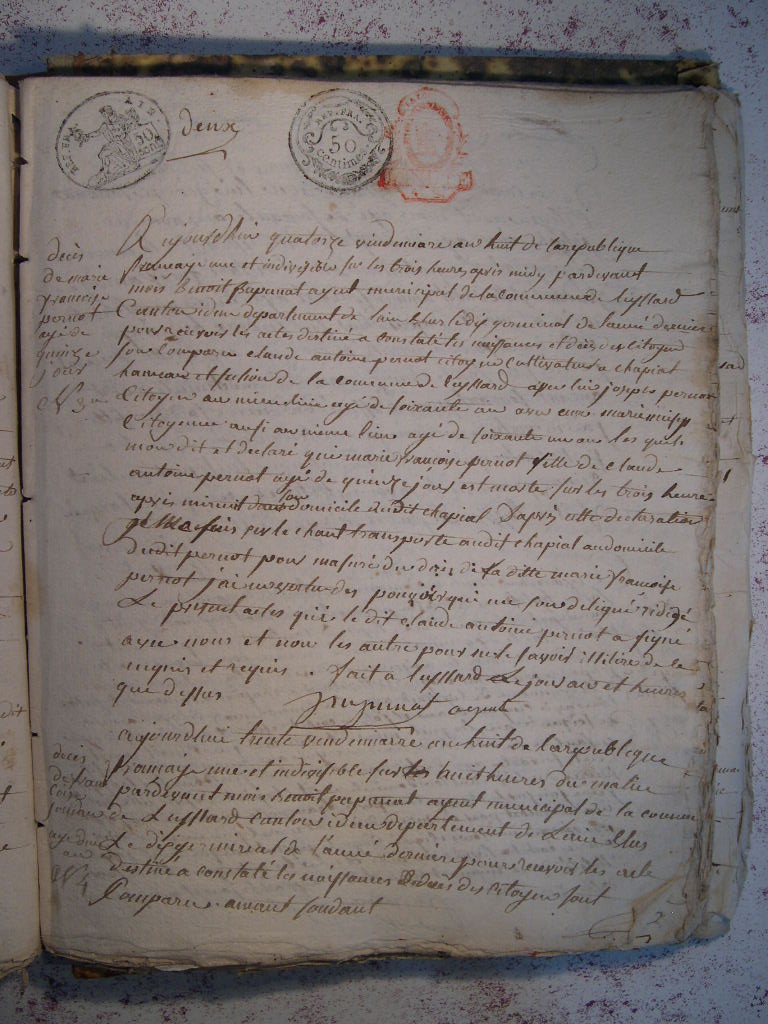 REP. FRA.
50 cent
deux
REP. FRA.
50
centimes
décès
de marie
françoise
pernot
agé de
quinze
jours
N 3
Aujourdhui quatorze vindemiaire an huit de la republique
francaise une et indivisible sur les trois heures apres midy pardevant
mois Benoit Papunat agent municipal de la commune de Lussard
Canton idem departement de lain Elus le dix germinal de lannée derniere
pour recevoir les actes destiné a constaté les naissances et décès des citoyens
son comparu claude antoine pernot citoyen cultivateur a chapiat
hameau et section de la commune de Lussard avec lui joseph pernot
Citoyen au meme lieu agé de soixante an avec eux marie
Citoyenne ausi au même lieu agé de soixante un an les quels
mon dit et declaré que marie francoise pernot fille de claude
antoine pernot agé de quinze jour est morte sur les trois heure
apres minuit dans son domicile audit chapiat Dapres cette declaration
je me suis sur le chant transporte audit chapiat au domicile
dudit pernot pour masuré du decés de la ditte marie francoise
pernot j'ai en vertu des pouvoir qui me son deligué rédigé
Le present actes que le dit claude antoine pernot a signé
avec nous et non les autre pour ne le savoir illitéré de ce
enquis et requis. fait a Lussard Le jour an et heures
que dessus
papunat agent
décès
de
jourdan
agé dun
an
N 4
aujourdhui trente vindemiaire an huit de la republique
francaise une et indivisible sur les huit heures du matin
pardevant mois Benoit papunat agent municipal de la commune
de Lussard Canton idem departement de Lain Elus
Le dix germinal de l'anné derniere pour recevoir les acte
destiné a constaté les naissances et décès des Citoyen sont
Comparu
2